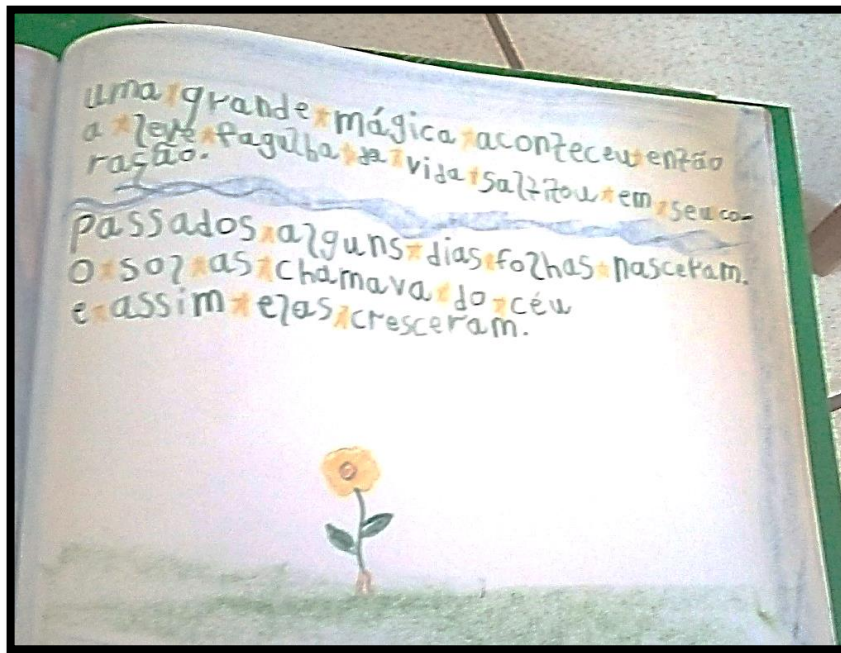 uma grande mágica aconteceu então
a leve fagulha da vida saltitou em seu co-
ração.
Passados alguns dias folhas nasceram.
O sol as chamava do céu
e assim elas cresceram.